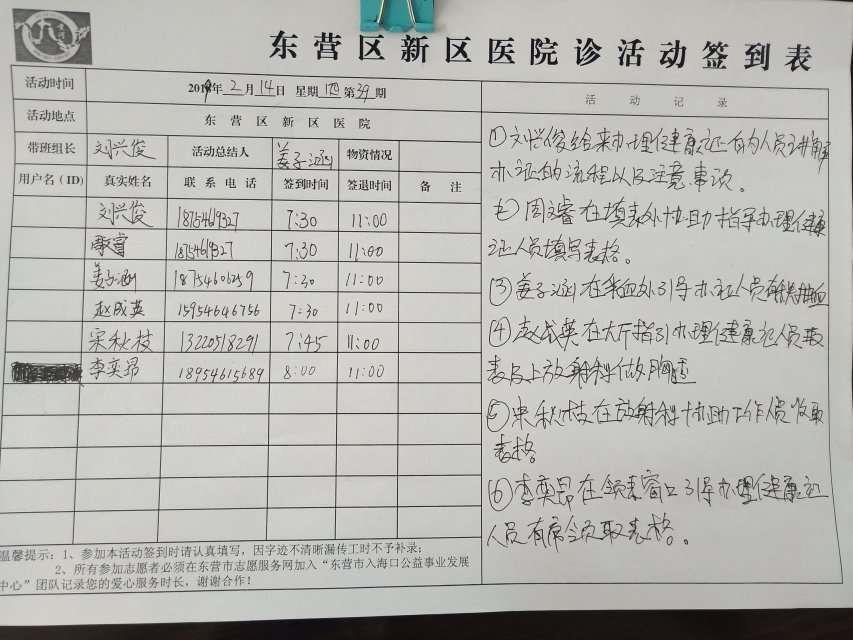 东营区新区医院诊活动签到表
活动时间 2019年2月14日 星期四第39期
活动地点 东营区新区医院
带班组长 刘兴俊 活动总结人 姜子涵 物资情况
用户名(ID) 真实姓名 联系电话 签到时间 签退时间 备注
刘兴俊 18754619327 7:30 11:00
睿 18754619327 7:30 11:00
姜子涵 18754606259 7:30 11:00
赵成英 15954646756 7:30 11:00
宋秋枝 13220518291 7:45 11:00
李奕昂 18954615689 8:00 11:00
温馨提示:1、参加本活动签到时请认真填写,因字迹不清晰漏传工时不予补录;
2、所有参加志愿者必须在东营市志愿服务网加入“东营市入海口公益事业发展
中心”团队记录您的爱心服务时长,谢谢合作!
活动记录
①刘兴俊给来办理健康证的人员讲解
办证的流程以及注意事项。
睿在填表处协助指导办理健康
证人员填写表格。
③姜子涵在采血处引导办证人员有秩排血
④赵成英在大厅指引办理健康证人员取
表后上放射科做胸透
⑤宋秋枝在放射科协助工作人员收取
表格
⑥李奕昂在领表窗口引导办理健康证
人员有序领取表格。